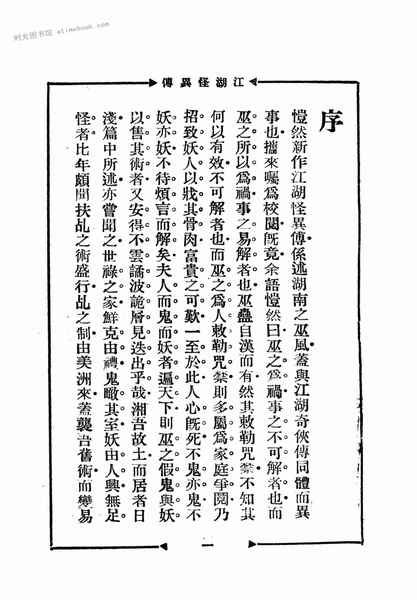 时光图书馆
江湖怪異傳
序
愷然新作江湖怪異傳係述湖南之巫風蓋與江湖奇俠傳同體而異
事也攜來囑爲校閱既竟余語愷然曰巫之爲禍事之不可解者也而
巫之所以爲禍事之易解者也巫蠱自漢而有然其敕勒咒禁不知其
何以有效不可解者也而巫之爲人敕勒咒禁則多屬爲家庭爭鬩乃
招致妖人以戕其骨肉富貴之可歎一至於此人心既死不鬼亦鬼不
妖亦妖不待煩言而解矣夫人而鬼而妖者遍天下則巫之假鬼與妖
以售其術者又安得不雲譎波詭層見迭出乎哉湘吾故土而居者日
淺篇中所述亦嘗聞之世祿之家鮮克由禮鬼瞰其室妖由人興無足
怪者比年頗聞扶乩之術盛行乩之制由美洲來蓋襲吾舊術而變易
一